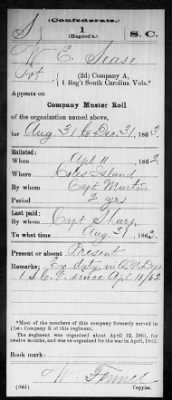 (Confederate.)
S 1 S. C.
(Hagood's)
W. E. Sease
Pvt., (2d) Company A,
1 Reg't South Carolina Vols.*
Appears on
Company Muster Roll
of the organization named above,
for Aug 31 to Dec. 31, 1862.
Enlisted:
When Apl 11, 1862
Where Coles Island
By whom Capt Martin
Period 2 yrs
Last paid:
By whom Capt Sharp
To what time Aug. 31, 1862.
Present or absent Present
Remarks: Ex duty in Q M Dept
1 S. C. V. since Apl 11/62
*Most of the members of this company formerly served in
(1st) Company E of this regiment.
The regiment was organized about April 12, 1861, for
twelve months, and was reorganized for the war in April, 1862.
Book mark:
W.
(641) Copyist.